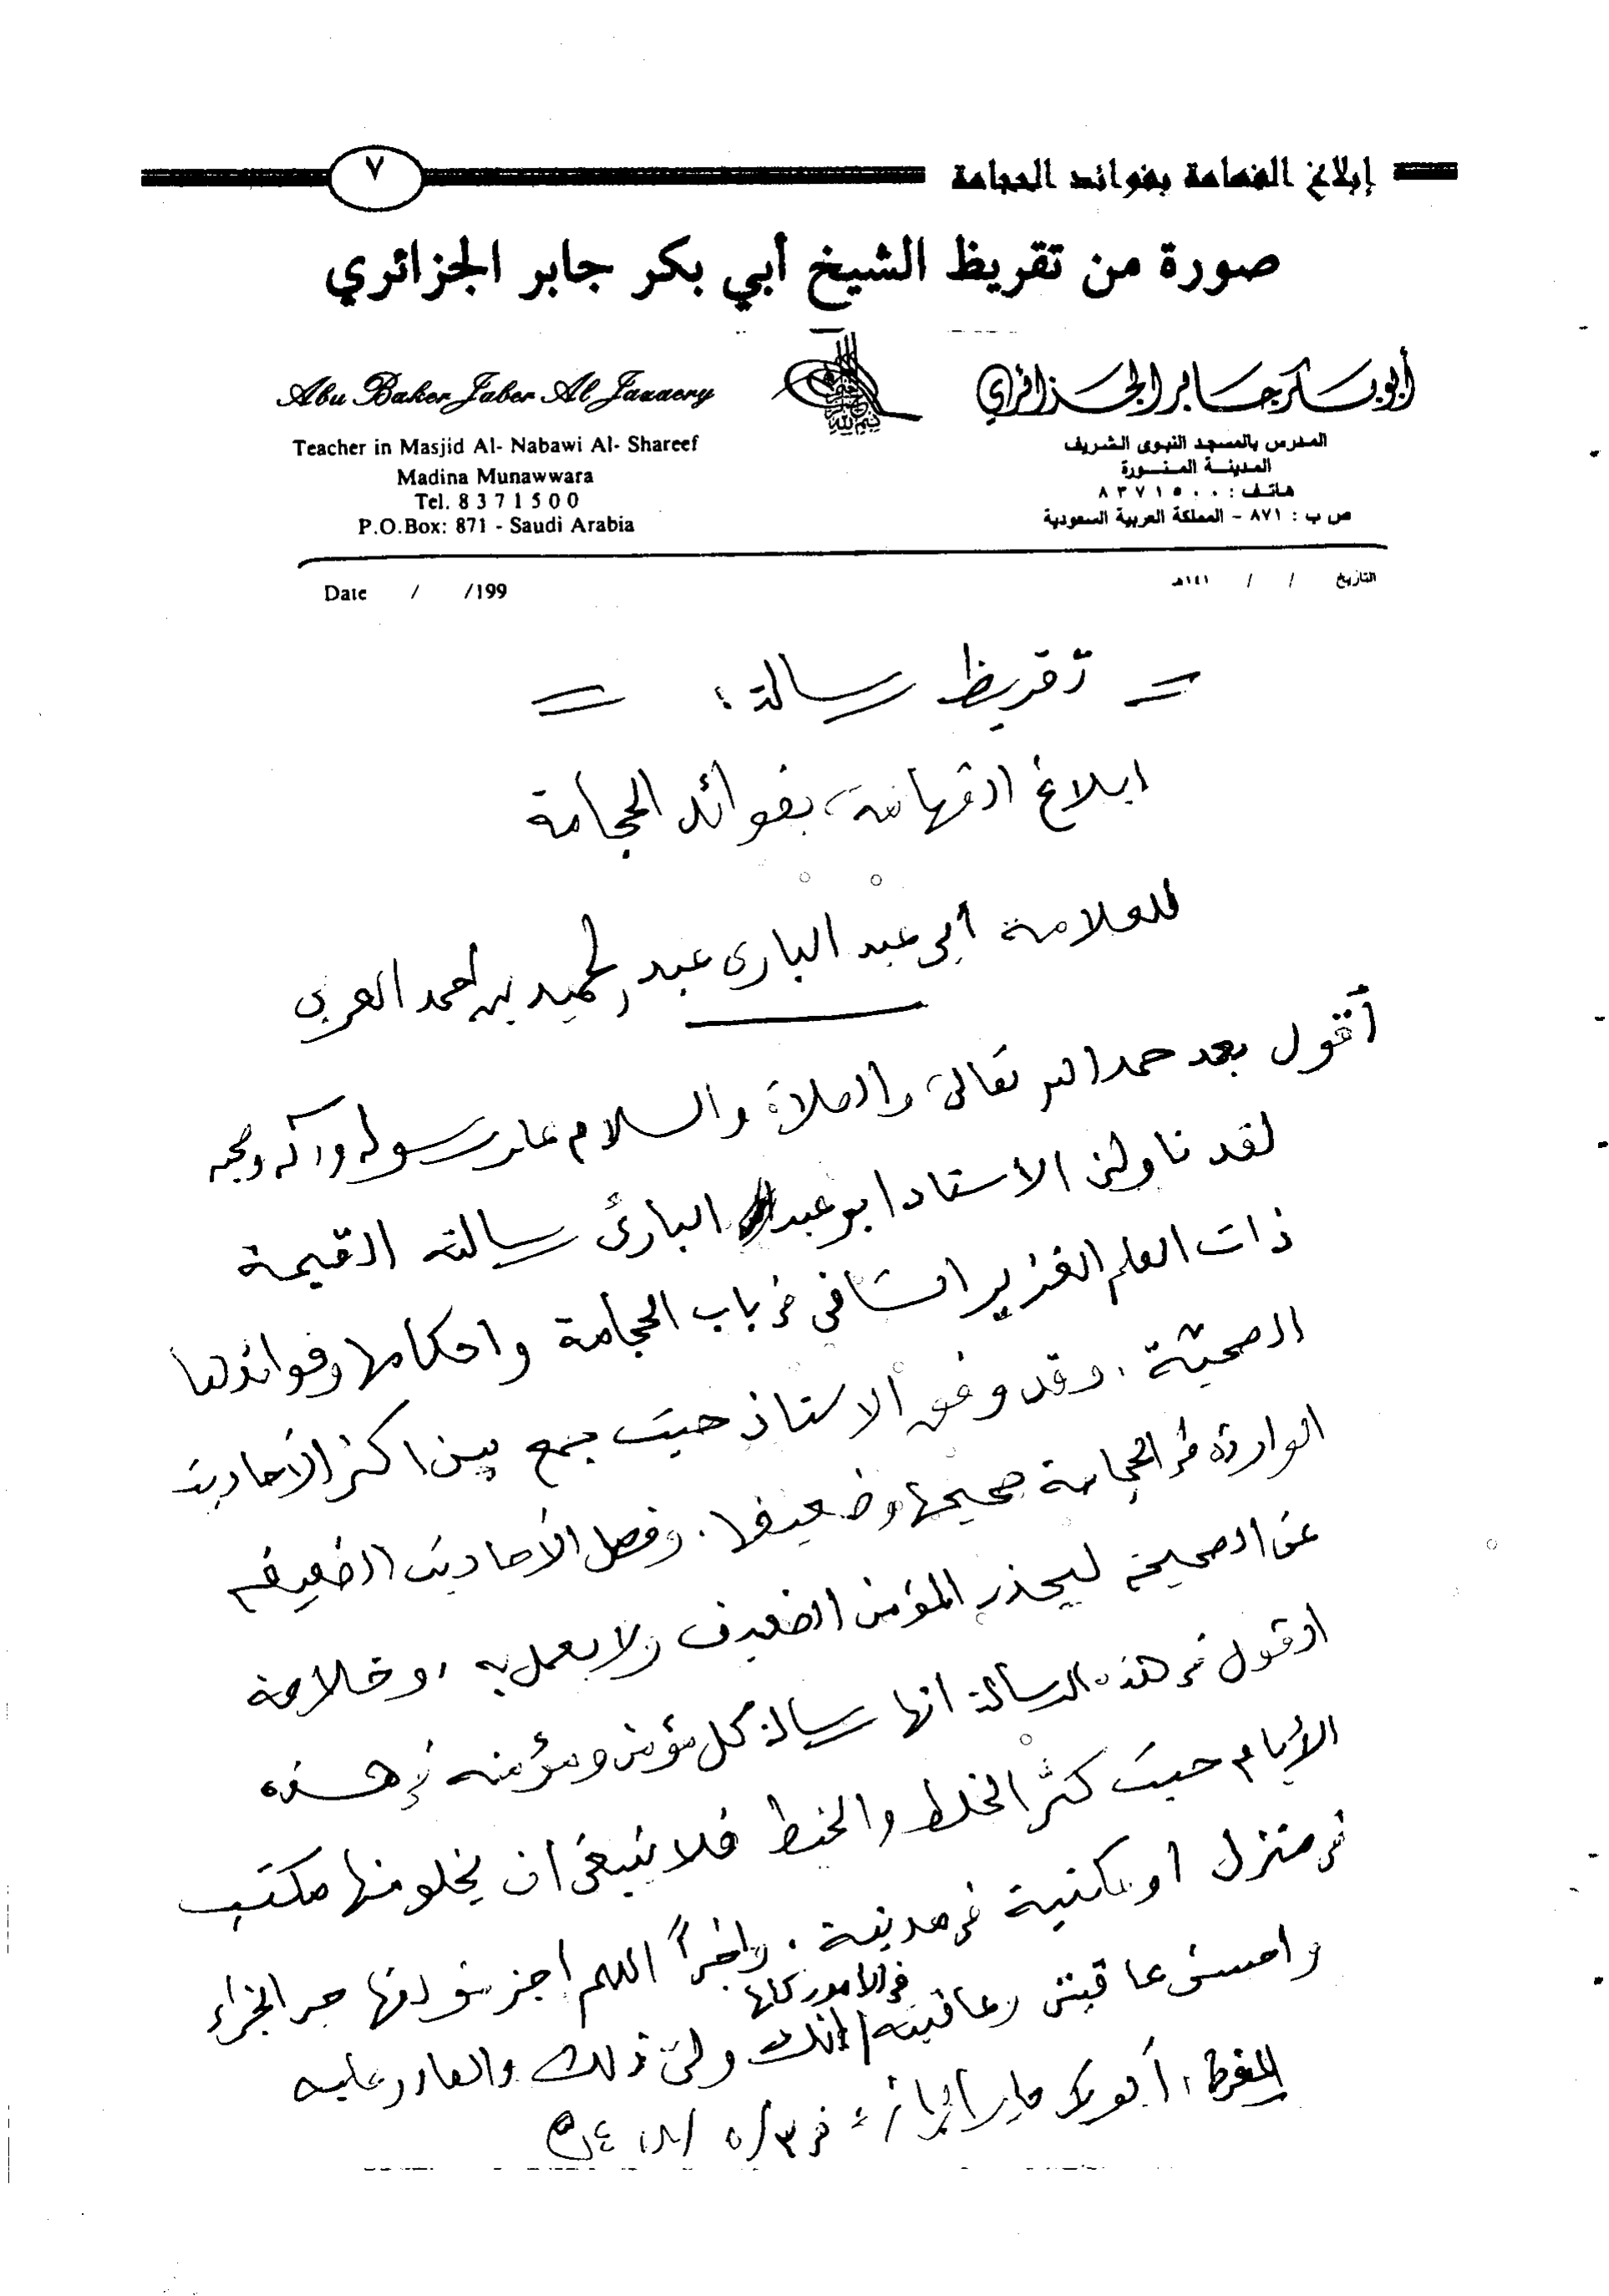 إبلاغ الفهامة بفوائد الحجامة
٧
صورة من تقريظ الشيخ أبي بكر جابر الجزائري
أبو بكر جابر الجزائري
المدرس بالمسجد النبوى الشريف
المدينة المنورة
هاتف : ٨٣٧١٥٠٠
ص ب : ٨٧١ - المملكة العربية السعودية
Abu Baker Jaber Al Jazaery
Teacher in Masjid Al- Nabawi Al- Shareef
Madina Munawwara
Tel. 8371500
P.O.Box: 871 - Saudi Arabia
التاريخ / / ١٤١هـ
Date / /199
= تقريظ رسالة : =
ابلاغ الفهامة، بفوائد الحجامة
للعلامة أبي عبد البارى عبد الحميد بن أحمد العربي
أقول بعد حمد الله تعالى، والصلاة والسلام على رسوله وآله وصحبه
لقد ناولني الاستاذ ابو عبد البارئ رسالته القيمة
ذات العلم الغزير الشافي في باب الحجامة واحكامها وفوائدها
الصحيّة، وقد وفق الاستاذ حيث جمع بين اكثر الأحاديث
الواردة في الحجامة صحيحها وضعيفها. وفصل الأحاديث الضعيفه
عن الصحيحة ليحذر المؤمن الضعيف ولا يعمل به، وخلاصة
القول في هذه الرسالة انها رسالة كل مؤمن ومؤمنه في هذه
الأيام حيث كثر الخلط والخبط فلا ينبغي ان يخلو منها مكتب
في منزل او مكتبة في مدينة. وأخيراً اللهم اجز مؤلفها خير الجزاء
واحسن عاقبتي وعاقبته في الامور كلها انك ولىّ ذلك والقادر عليه
المقرظ، أبو بكر جابر الجزائري في ٣/ ٥ /١٤١٨هـ